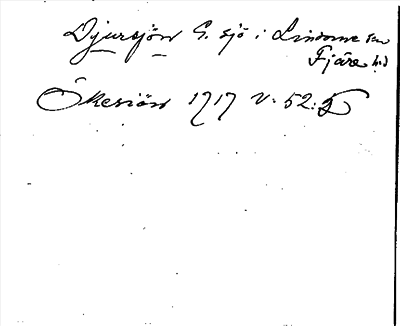 Djursjön G. sjö i Lindome sn
Fjäre hd
Ökesiön 1717 V. 52: